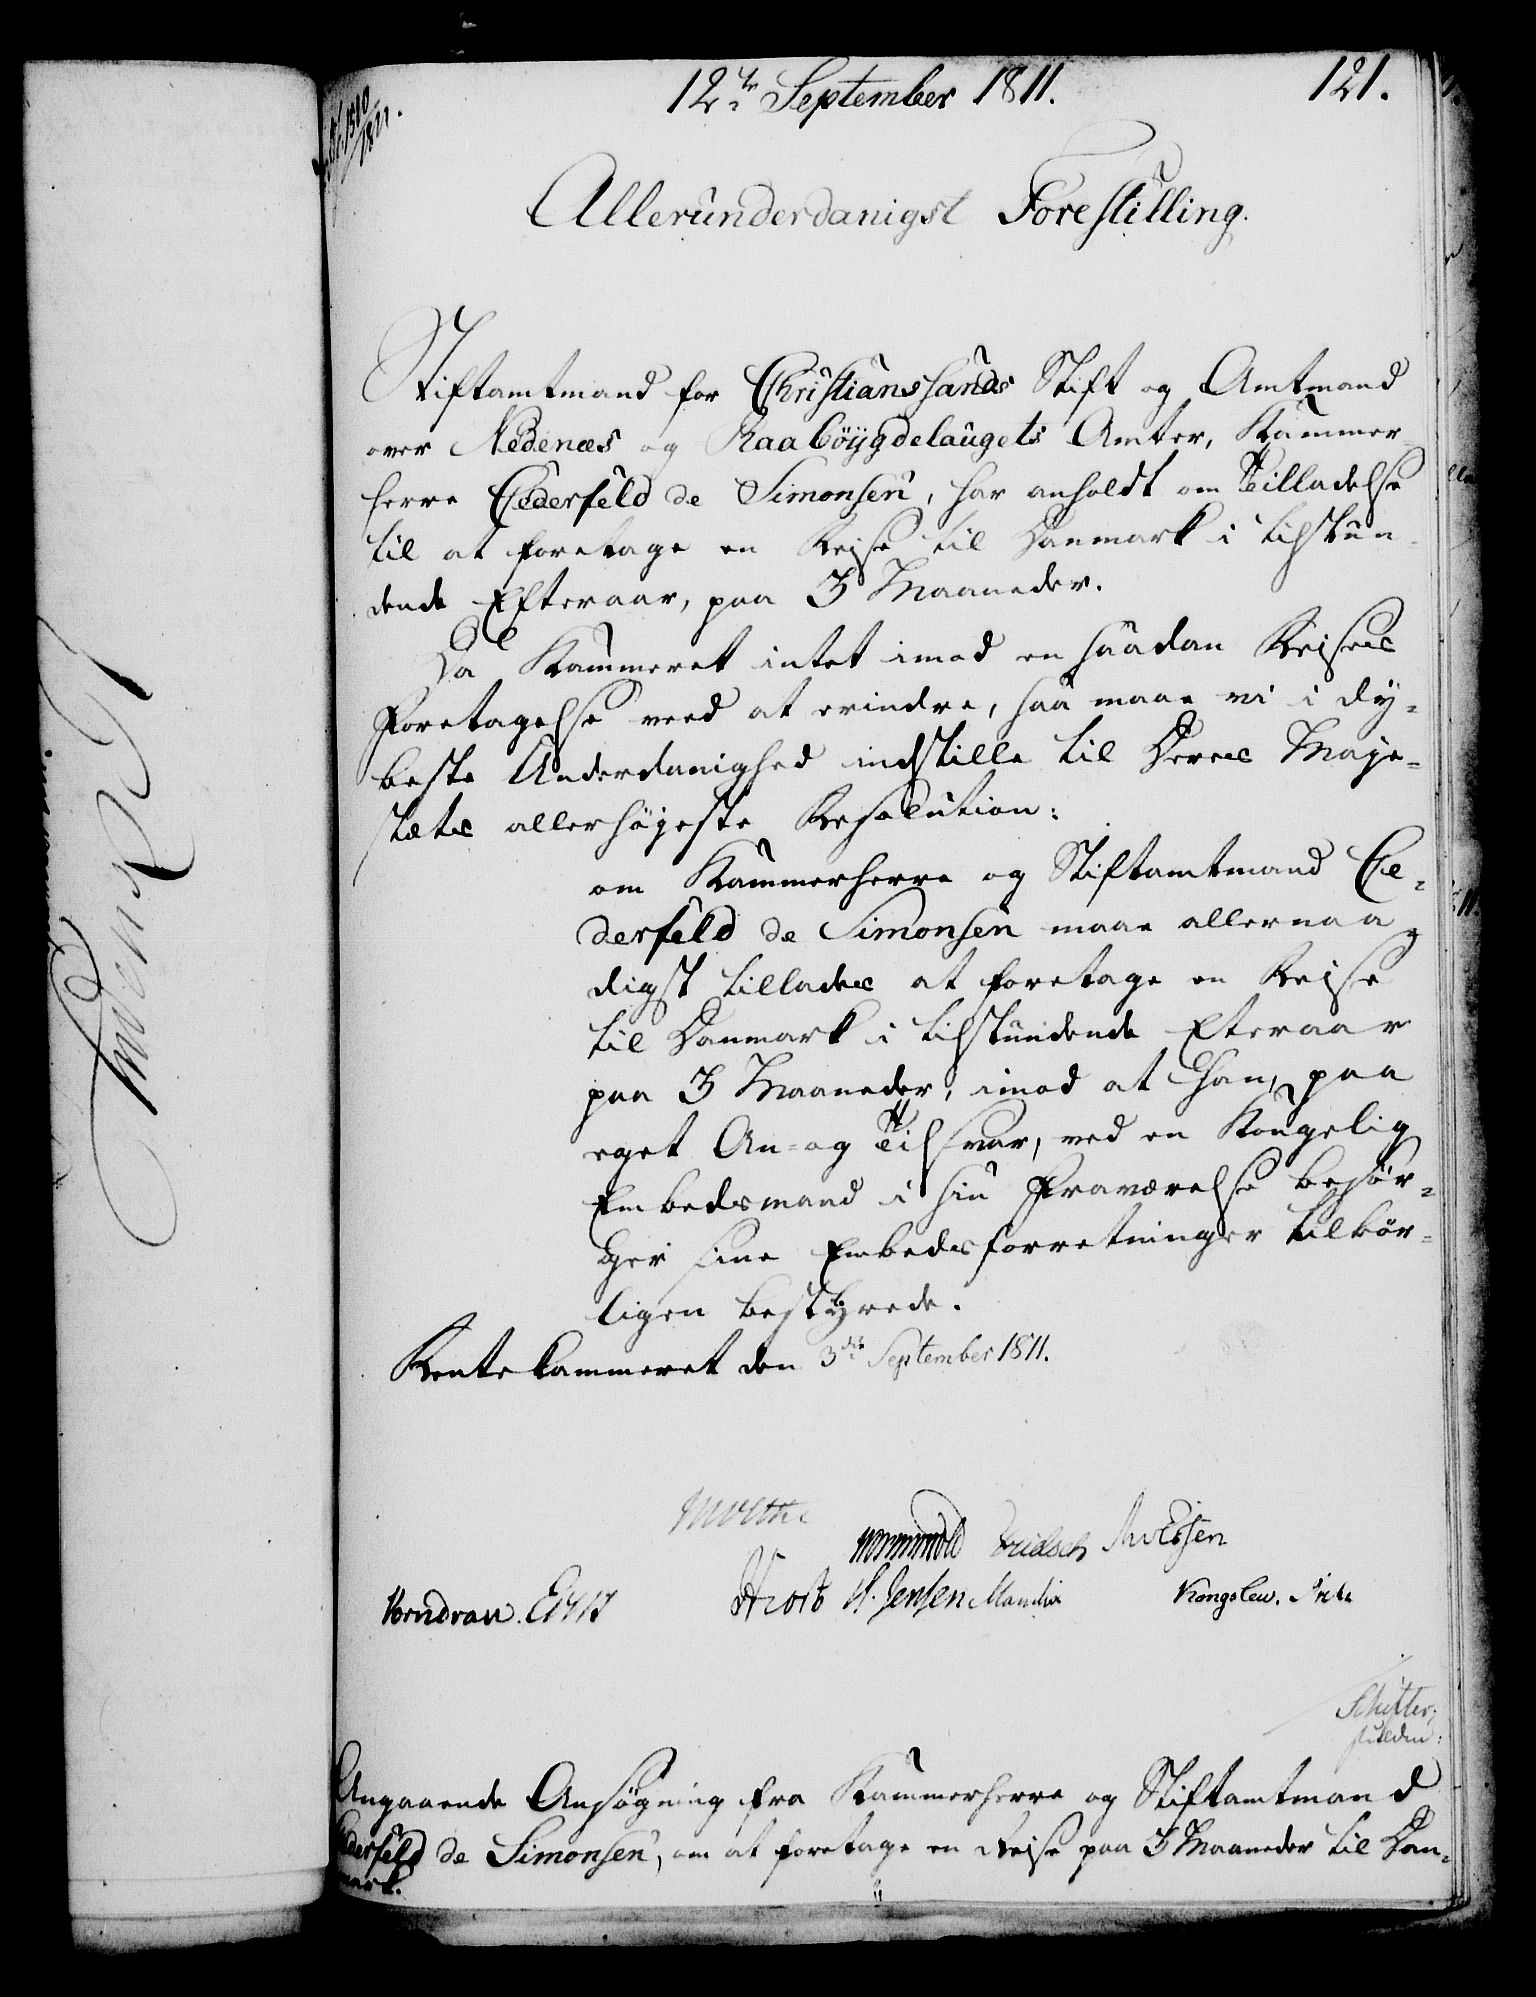 12te September 1811.
121.
1510/1811.
Allerunderdanigst Forestilling.
Stiftamtmand for Christianssands Stift og Amtmand
over Nedenæs og Raaböijgdelaugets Amter, Kammer-
herre Cederfeld de Simonsen, har anholdt om Tilladelse
til at foretage en Reise til Danmark i tilstun-
dende Efteraar, paa 3 Maaneder.
Da Kammeret intet imod en saadan Reises
Foretagelse veed at erindre, saa maae vi i dy-
beste Underdanighed indstille til Deres Maje-
stæts allerhøjeste Resolution:
om Kammerherre og Stiftamtmand Ce-
derfeld de Simonsen maae allernaa-
digst tillades at foretage en Reise
til Danmark i tilstundende Eteraar
paa 3 Maaneder, imod at han, paa
eget An- og Tilsvar, ved en Kongelig
Embedsmand i sin Fraværelse besör-
ger sine Embedsforretninger tilbör-
ligen bestyrede.
Rentekammeret den 3die September 1811.
Moltke
Wormskiold
Knudsen
Vendrau.
H. Jensen Manthe
Kongslew.
Schutter,
Angaaende Ansøgning fra Kammerherre og Stiftamtmand
Cederfeld de Simonsen, om at foretage en Reise paa 3 Maaneder til Dan-
mark.